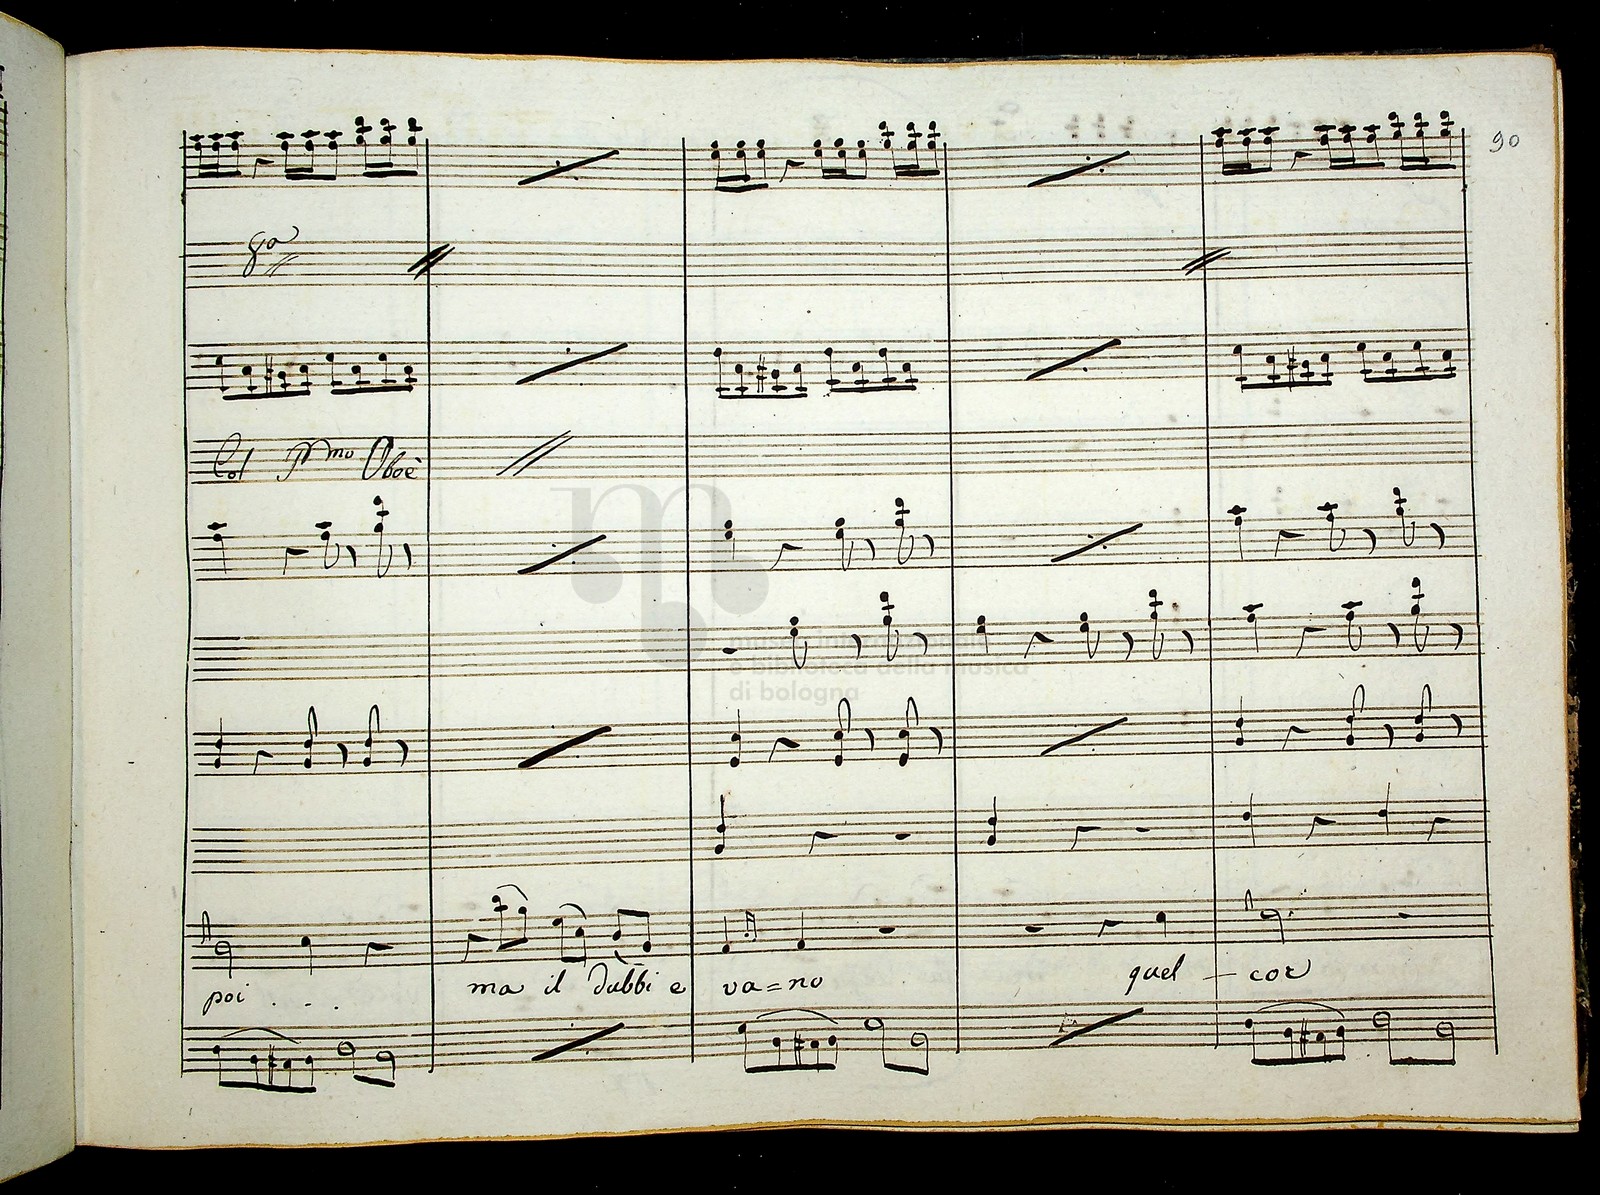 90
8a
Col Pmo Oboè
museo internazionale
e biblioteca della musica
di bologna
poi . . . ma il dubbi e va=no quel — cor